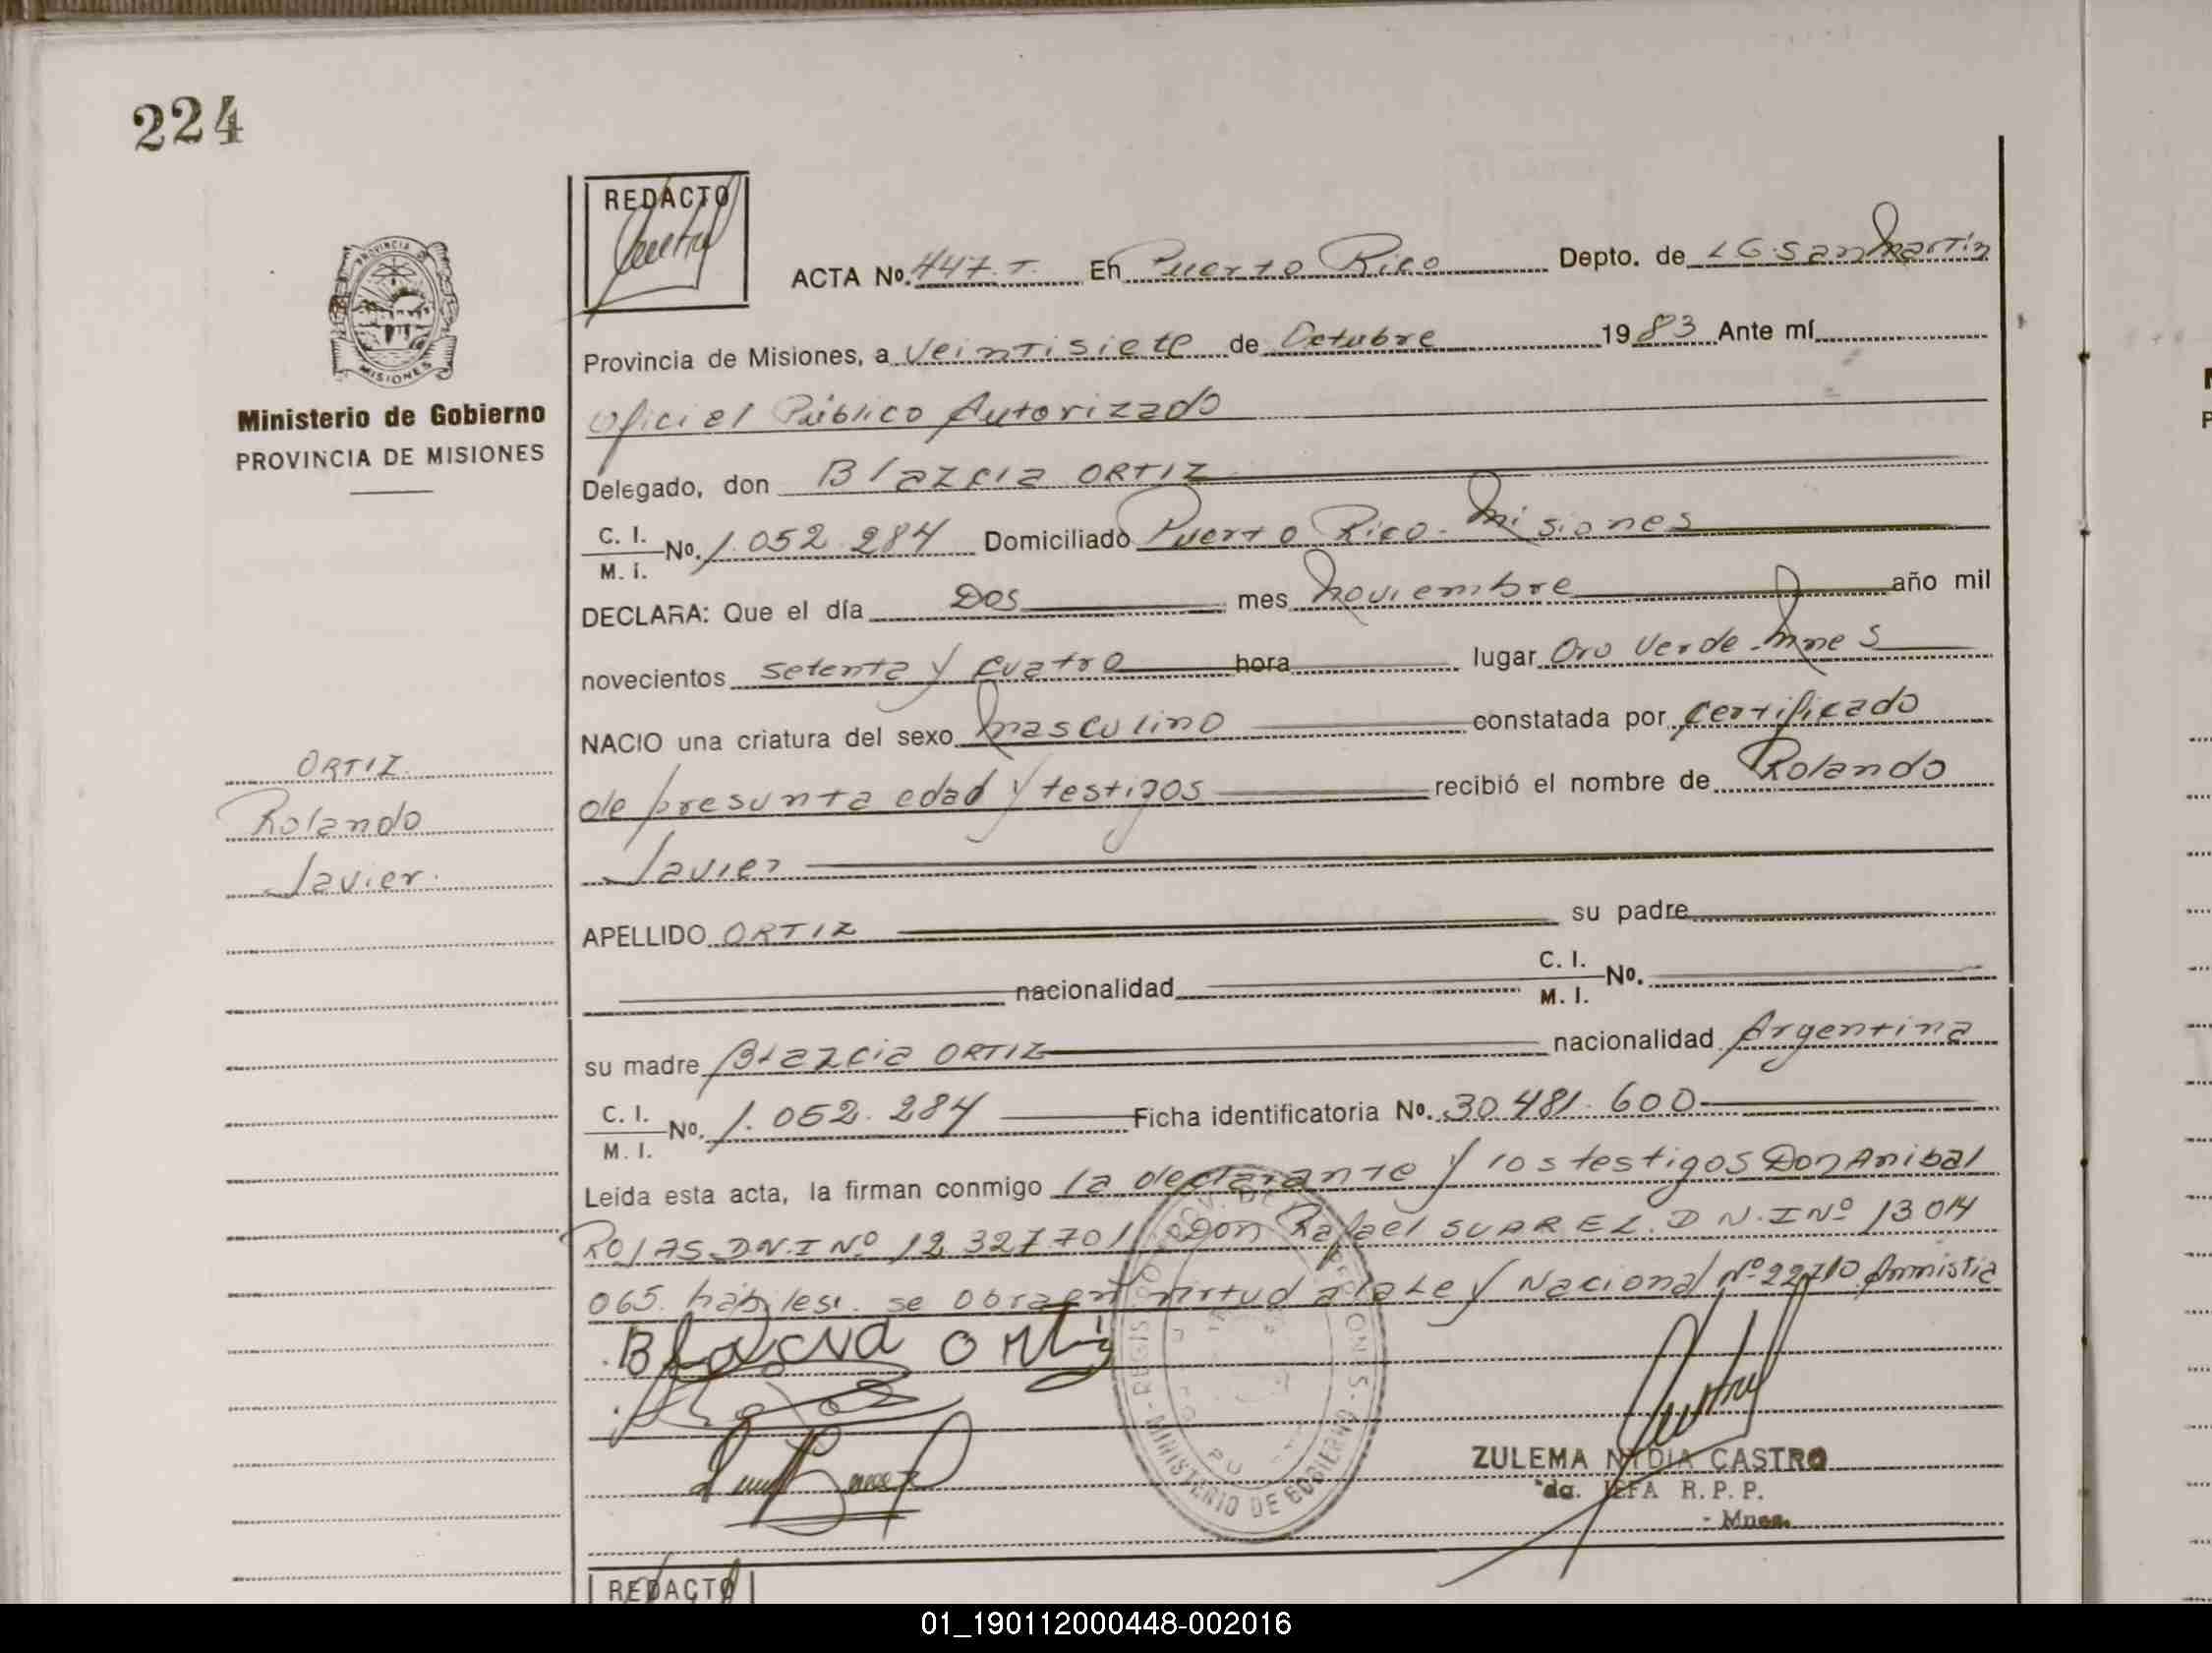 224
REDACTO
PROVINCIA
MISIONES
Ministerio de Gobierno
PROVINCIA DE MISIONES
ACTA No. 447. T. En Puerto Rico Depto. de L G. San Martín
Provincia de Misiones, a veintisiete de Octubre 1983 Ante mí
Oficiel Público Autorizado
Delegado, don Blazcia ORTIZ
C. I. / M. I. No. 1.052 284 Domiciliado Puerto Rico - Misiones
DECLARA: Que el día Dos mes Noviembre año mil
novecientos setenta y cuatro hora lugar Oro Verde - Mnes
NACIO una criatura del sexo Masculino constatada por certificado
de presunta edad y testigos recibió el nombre de Rolando
Javier
APELLIDO ORTIZ su padre
nacionalidad C. I. / M. I. No.
su madre Blazcia ORTIZ nacionalidad Argentina
C. I. / M. I. No. 1. 052. 284 Ficha identificatoria No. 30 481. 600
Leida esta acta, la firman conmigo la declarante y los testigos Don Anibal
ROJAS D.N.I Nº 12 327 701 Don Rafael SUAREZ. D N.I Nº 13 014
065. hábiles. se obra en virtud a la Ley Nacional Nº 22710 Amnistia
ORTIZ.
Rolando
Javier.
Blascia Ortiz
MINISTERIO DE GOBIERNO
ZULEMA NYDIA CASTRO
da. JEFA R. P. P.
- Mnes.
REDACTO
01_190112000448-002016